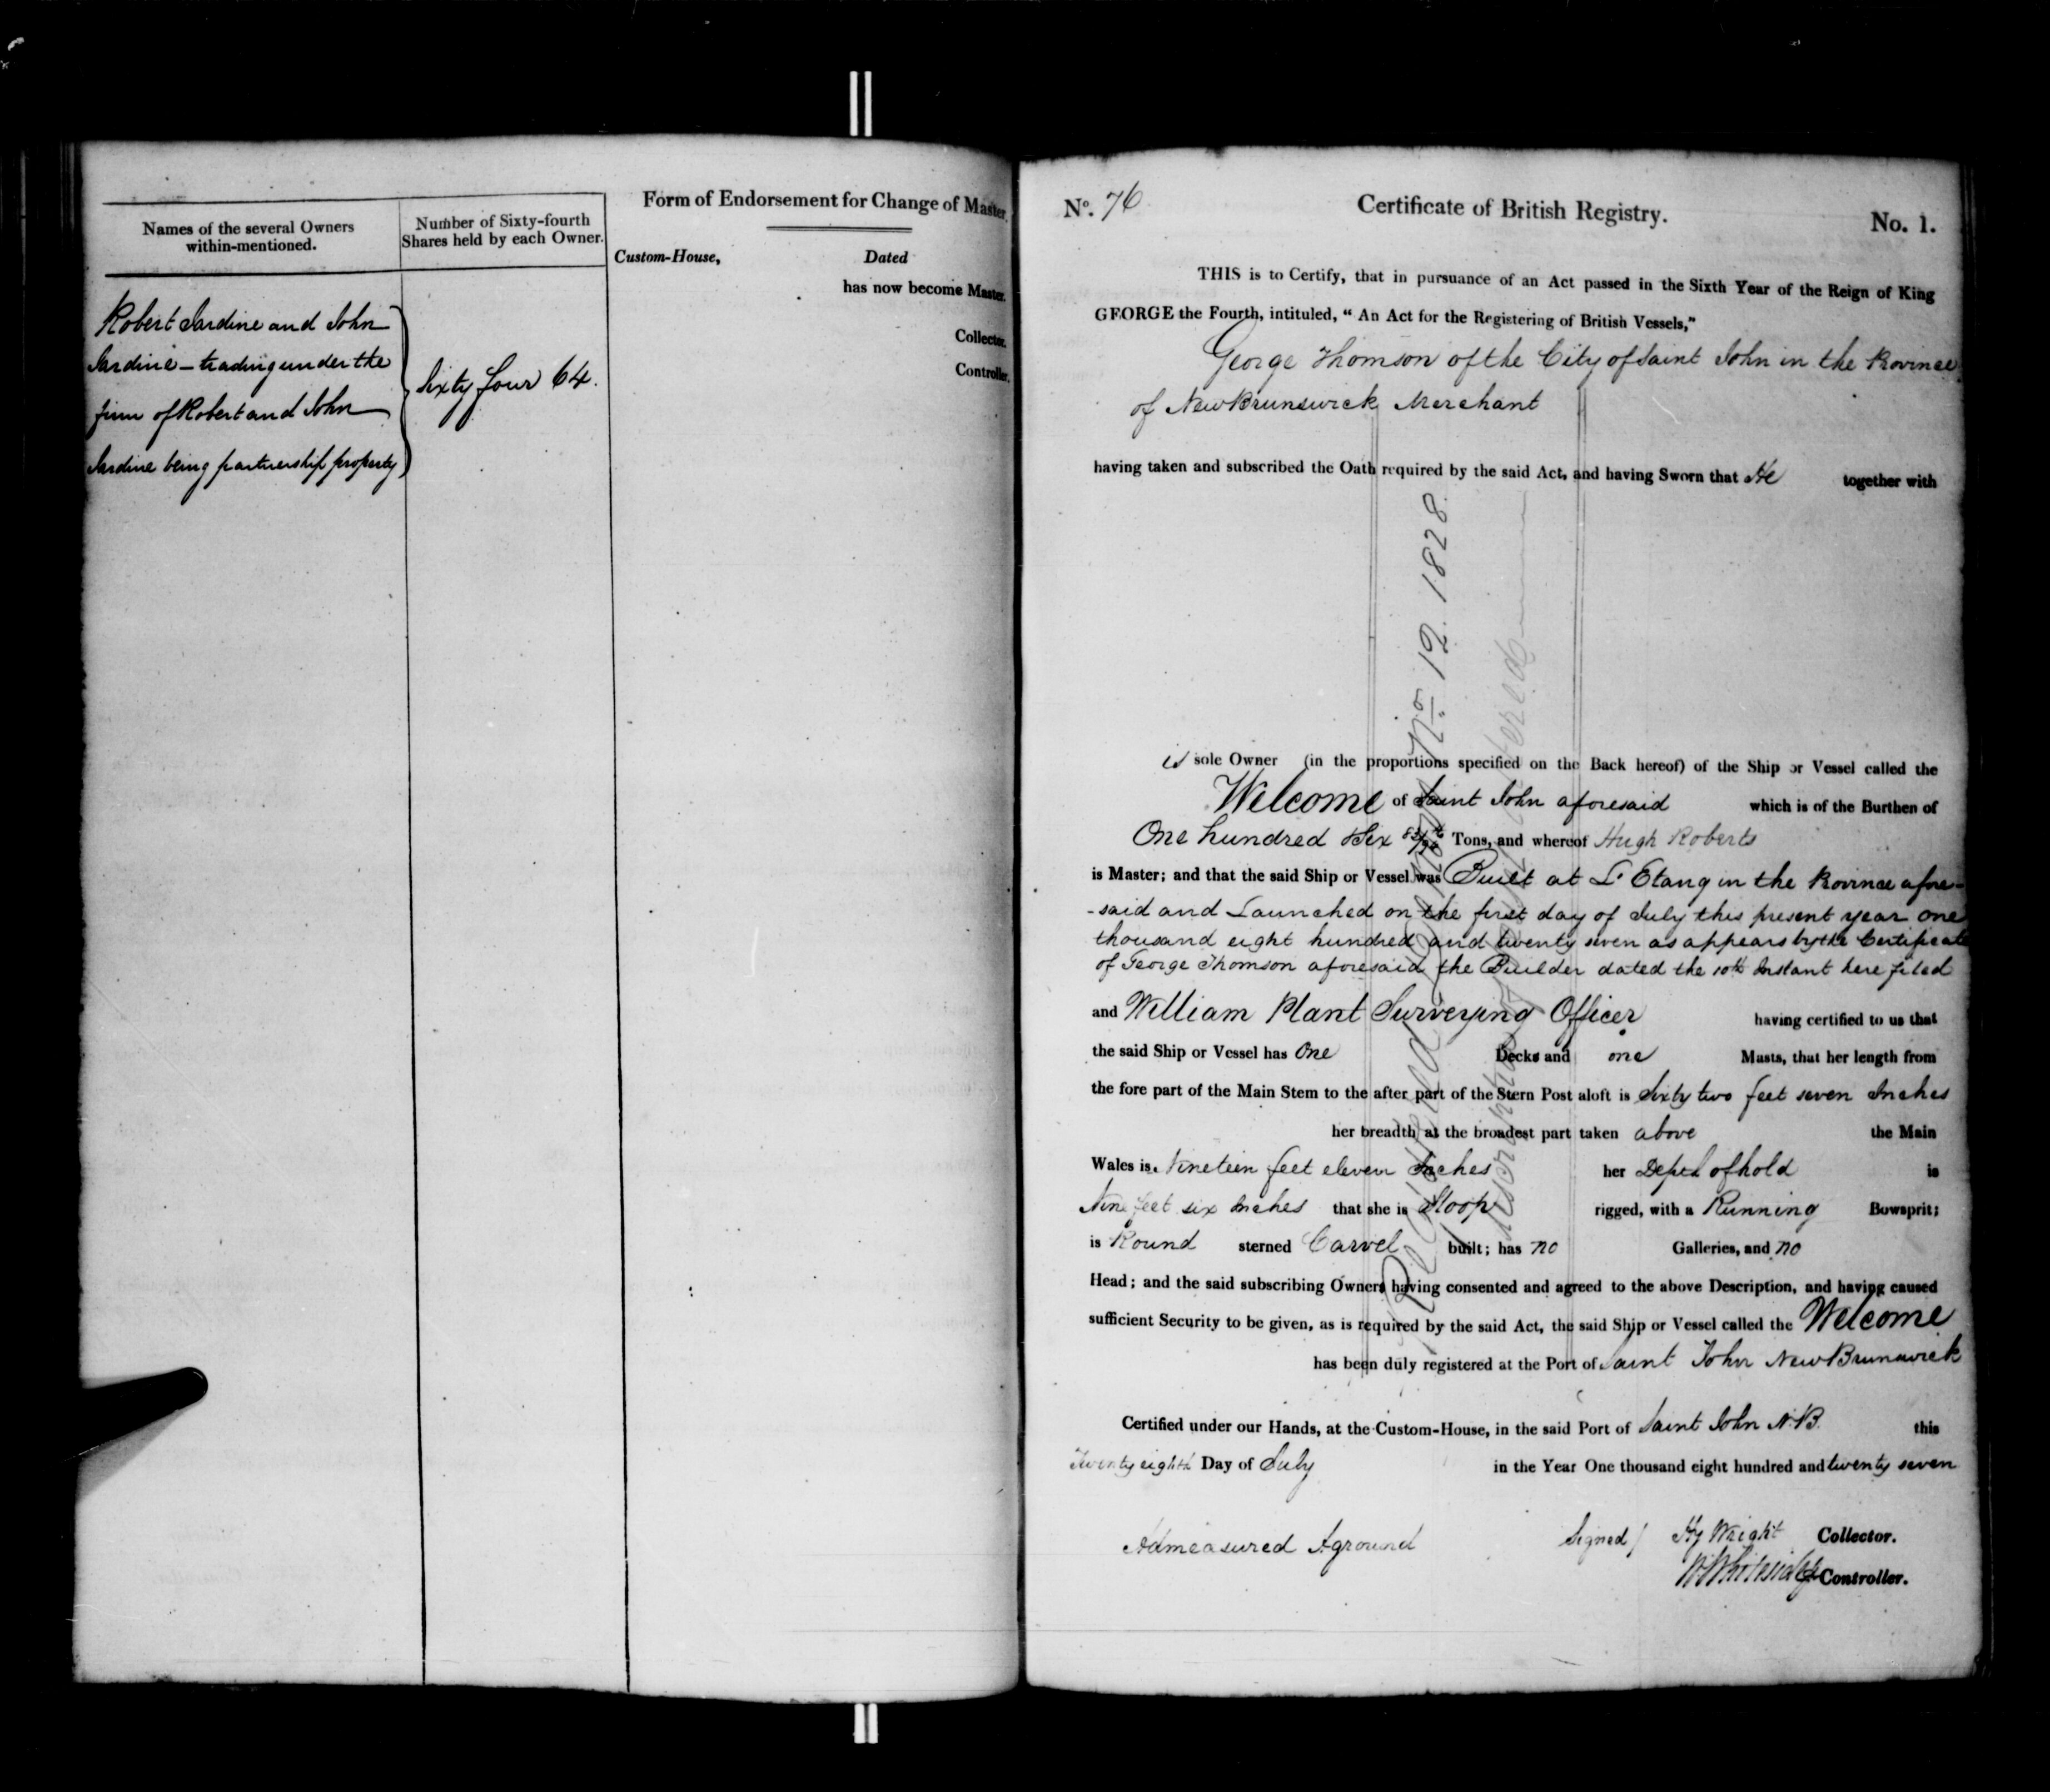 Names of the several Owners
within-mentioned.
Number of Sixty-fourth
Shares held by each Owner.
Robert Jardine and John
Jardine – trading under the
firm of Robert and John
Jardine being partnership property
Sixty four 64.
Form of Endorsement for Change of Master.
Custom-House, Dated
has now become Master.
Collector.
Controller.
No. 76 Certificate of British Registry. No. 1.
THIS is to Certify, that in pursuance of an Act passed in the Sixth Year of the Reign of King
GEORGE the Fourth, intituled, “ An Act for the Registering of British Vessels,”
George Thomson of the City of Saint John in the Province
of New Brunswick Merchant
having taken and subscribed the Oath required by the said Act, and having Sworn that He together with
is sole Owner (in the proportions specified on the Back hereof) of the Ship or Vessel called the
Welcome of Saint John aforesaid which is of the Burthen of
One hundred & Six Tons, and whereof Hugh Roberts
is Master; and that the said Ship or Vessel was Built at L'Etang in the Province afore-
-said and Launched on the first day of July this present year one
thousand eight hundred and twenty seven as appears by the Certificate
of George Thomson aforesaid the Builder dated the 10th Instant here filed
and William Plant Surveying Officer having certified to us that
the said Ship or Vessel has One Decks and one Masts, that her length from
the fore part of the Main Stem to the after part of the Stern Post aloft is Sixty two feet seven Inches
her breadth at the broadest part taken above the Main
Wales is Nineteen feet eleven Inches her Depth of hold is
Nine feet six Inches that she is Sloop rigged, with a Running Bowsprit;
is Round sterned Carvel built; has no Galleries, and no
Head; and the said subscribing Owners having consented and agreed to the above Description, and having caused
sufficient Security to be given, as is required by the said Act, the said Ship or Vessel called the Welcome
has been duly registered at the Port of Saint John New Brunswick
Certified under our Hands, at the Custom-House, in the said Port of Saint John N.B. this
Twenty eighth Day of July in the Year One thousand eight hundred and twenty seven
Admeasured Aground
Signed / Hy Wright Collector.
Controller.
No. 12. 1828.